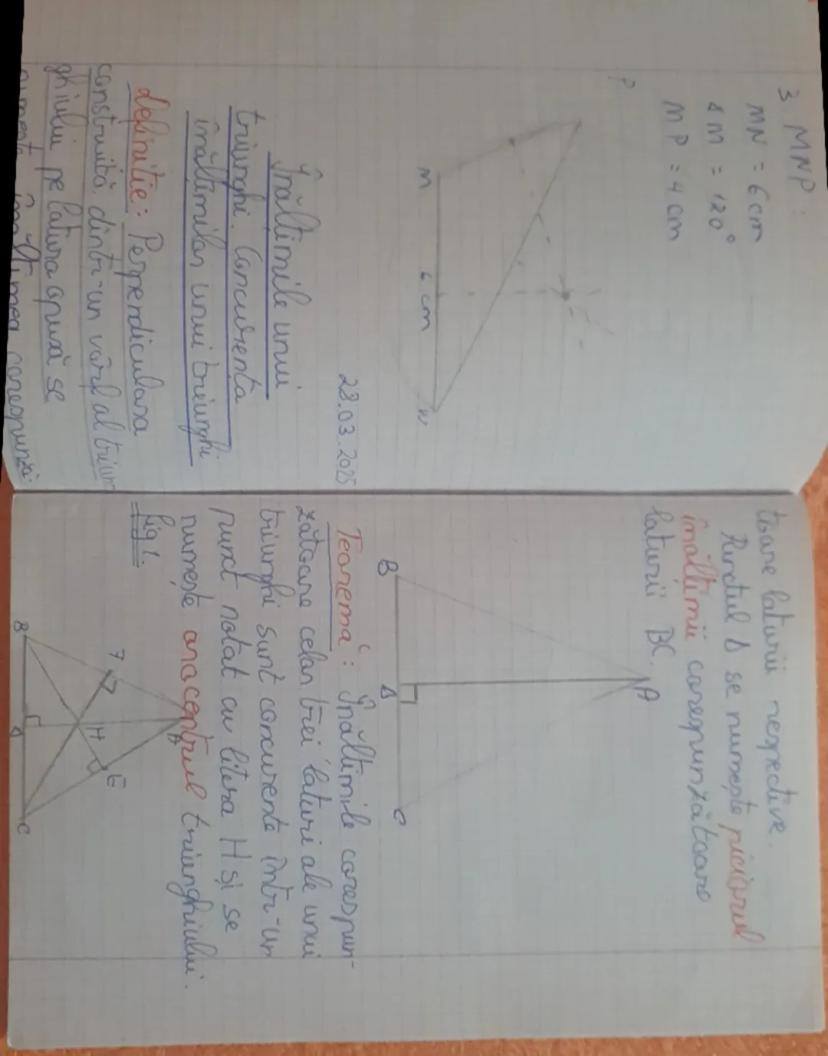 3 MNP:
MN = 6 cm
∡M = 120°
MP = 4 cm
P
M 6 cm N
28.03.2025
Înălțimile unui
triunghi. Concurența
înălțimilor unui triunghi
definiție: Perpendiculara
construită dintr-un vârf al triun
ghiului pe latura opusă se
numește înălțimea corespunză
toare laturii respective.
Punctul Δ se numește piciorul
înălțimii corespunzătoare
laturii BC.
A
B Δ C
Teoremă: Înălțimile corespun-
zătoare celor trei laturi ale unui
triunghi sunt concurente într-un
punct notat cu litera H și se
numește ortocentrul triunghiului.
fig 1.
A
F E
H
B Δ C